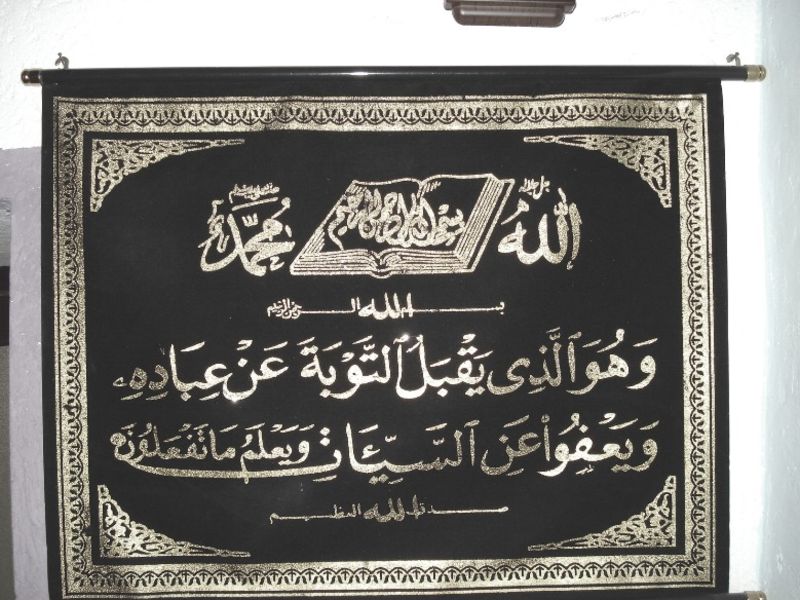 الله جل جلاله
بسم الله الرحمن الرحيم
محمد
بسم الله الرحمن الرحيم
وَهُوَ ٱلَّذِى يَقْبَلُ ٱلتَّوْبَةَ عَنْ عِبَادِهِۦ
وَيَعْفُوا۟ عَنِ ٱلسَّيِّـَٔاتِ وَيَعْلَمُ مَا تَفْعَلُونَ
صدق الله العظيم